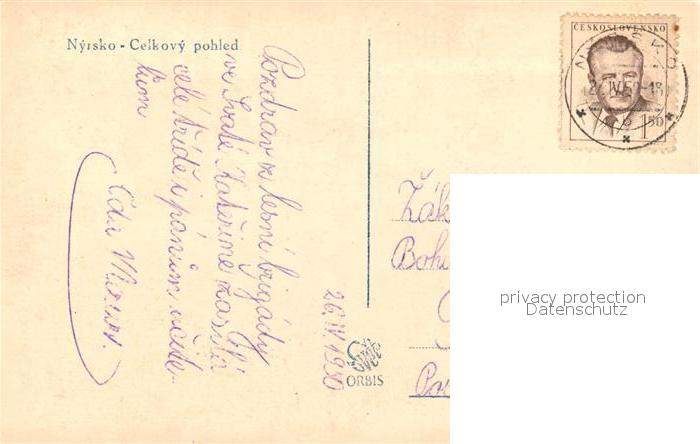 Nýrsko - Celkový pohled
Pozdrav ze lesní brigády
ve Svaté Kateřině zasílá
celé třídě i pánům učite-
lům
Eda
26.IV 1950
ORBIS
ČESKOSLOVENSKO
1.50
Žák
Bohu
privacy protection
Datenschutz